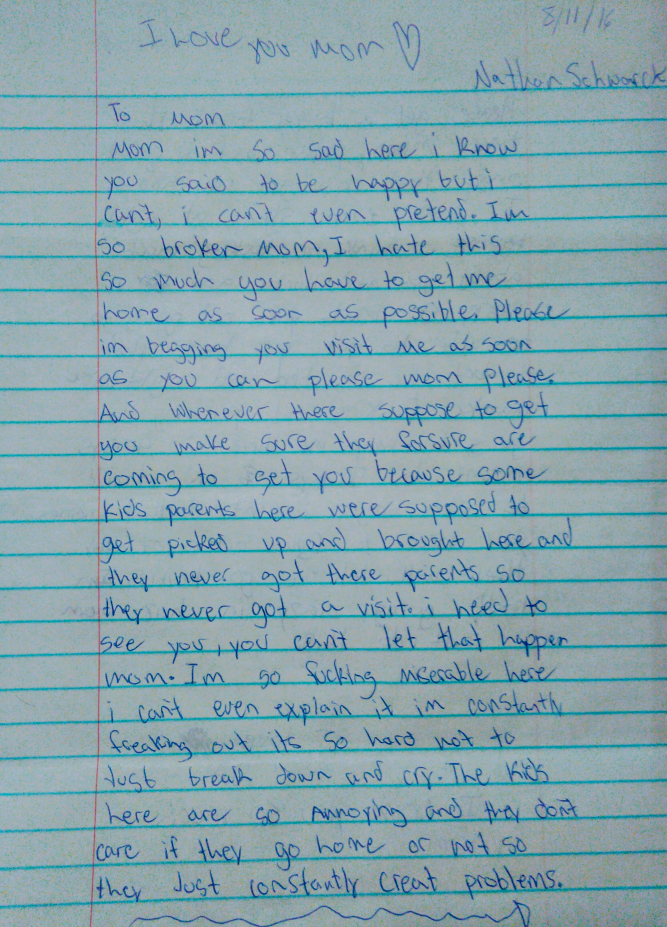 8/11/16
I Love you mom ♡
Nathan Schwarck
To mom
Mom im so sad here i know
you said to be happy but i
can't, i can't even pretend. I'm
so broken Mom, I hate this
so much you have to get me
home as soon as possible. Please
im begging you visit me as soon
as you can please mom please.
And whenever there suppose to get
you make sure they forsure are
coming to get you because some
kids parents here were supposed to
get picked up and brought here and
they never got there parents so
they never got a visit. i need to
see you, you can't let that happen
mom. I'm so fucking miserable here
i can't even explain it im constantly
freaking out its so hard not to
Just break down and cry. The kids
here are so Annoying and they don't
care if they go home or not so
they Just constantly creat problems.